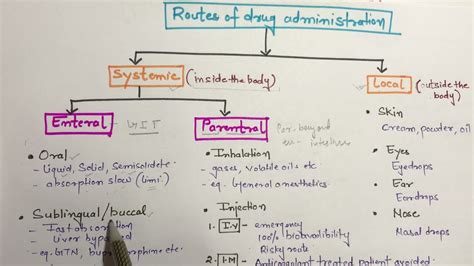 Routes of drug administration
Systemic (inside the body)
Local (outside the body)
Enteral - GIT
Parentral
Par-beyond
en - intestine
• Oral
- Liquid, Solid, Semisolid etc
- absorption slow
• Sublingual/buccal
- Fast absorption
- Liver bypassed
- eg. GTN,
• Inhalation
- gases, volatile oils etc
- eg. General anesthetics
• Injection
1. I.V - emergency
100% bioavailibility
Risky route
2. I.M - Anticoagulant treated patient avoided
• Skin
Cream, powder, oil
• Eyes
Eyedrops
• Ear
Eardrops
• Nose
Nasal drops